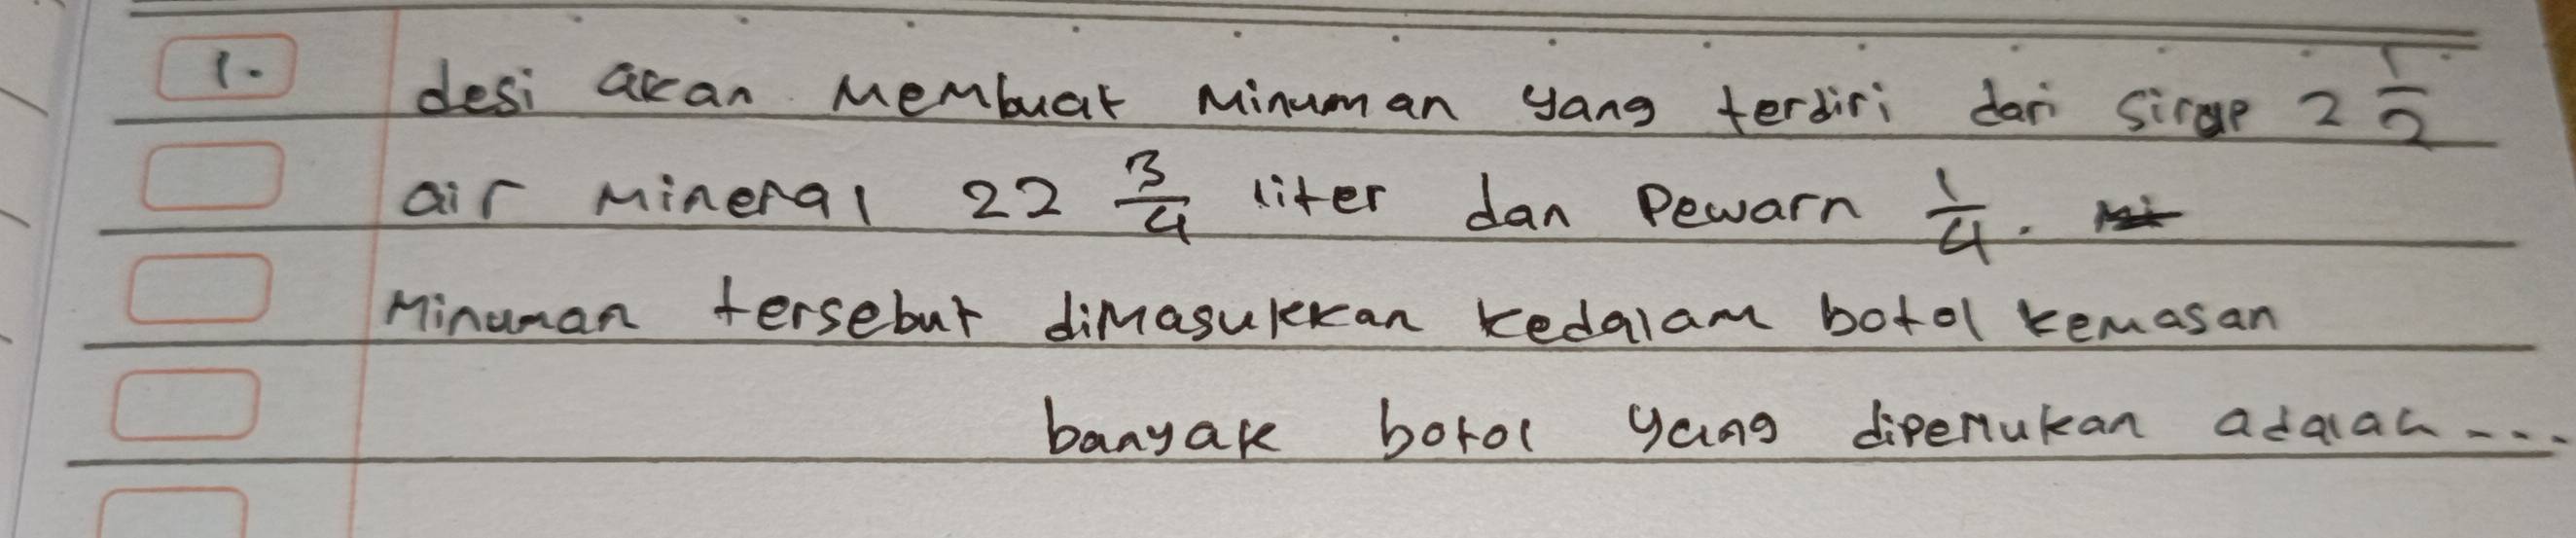 1. desi akan Membuat Minuman yang terdiri dari sirop 2 1/2
air Mineral 22 3/4 liter dan Pewarn 1/4.
Minuman tersebut diMasukkan kedalam botol kemasan
banyak botol yang diperlukan adalah ...